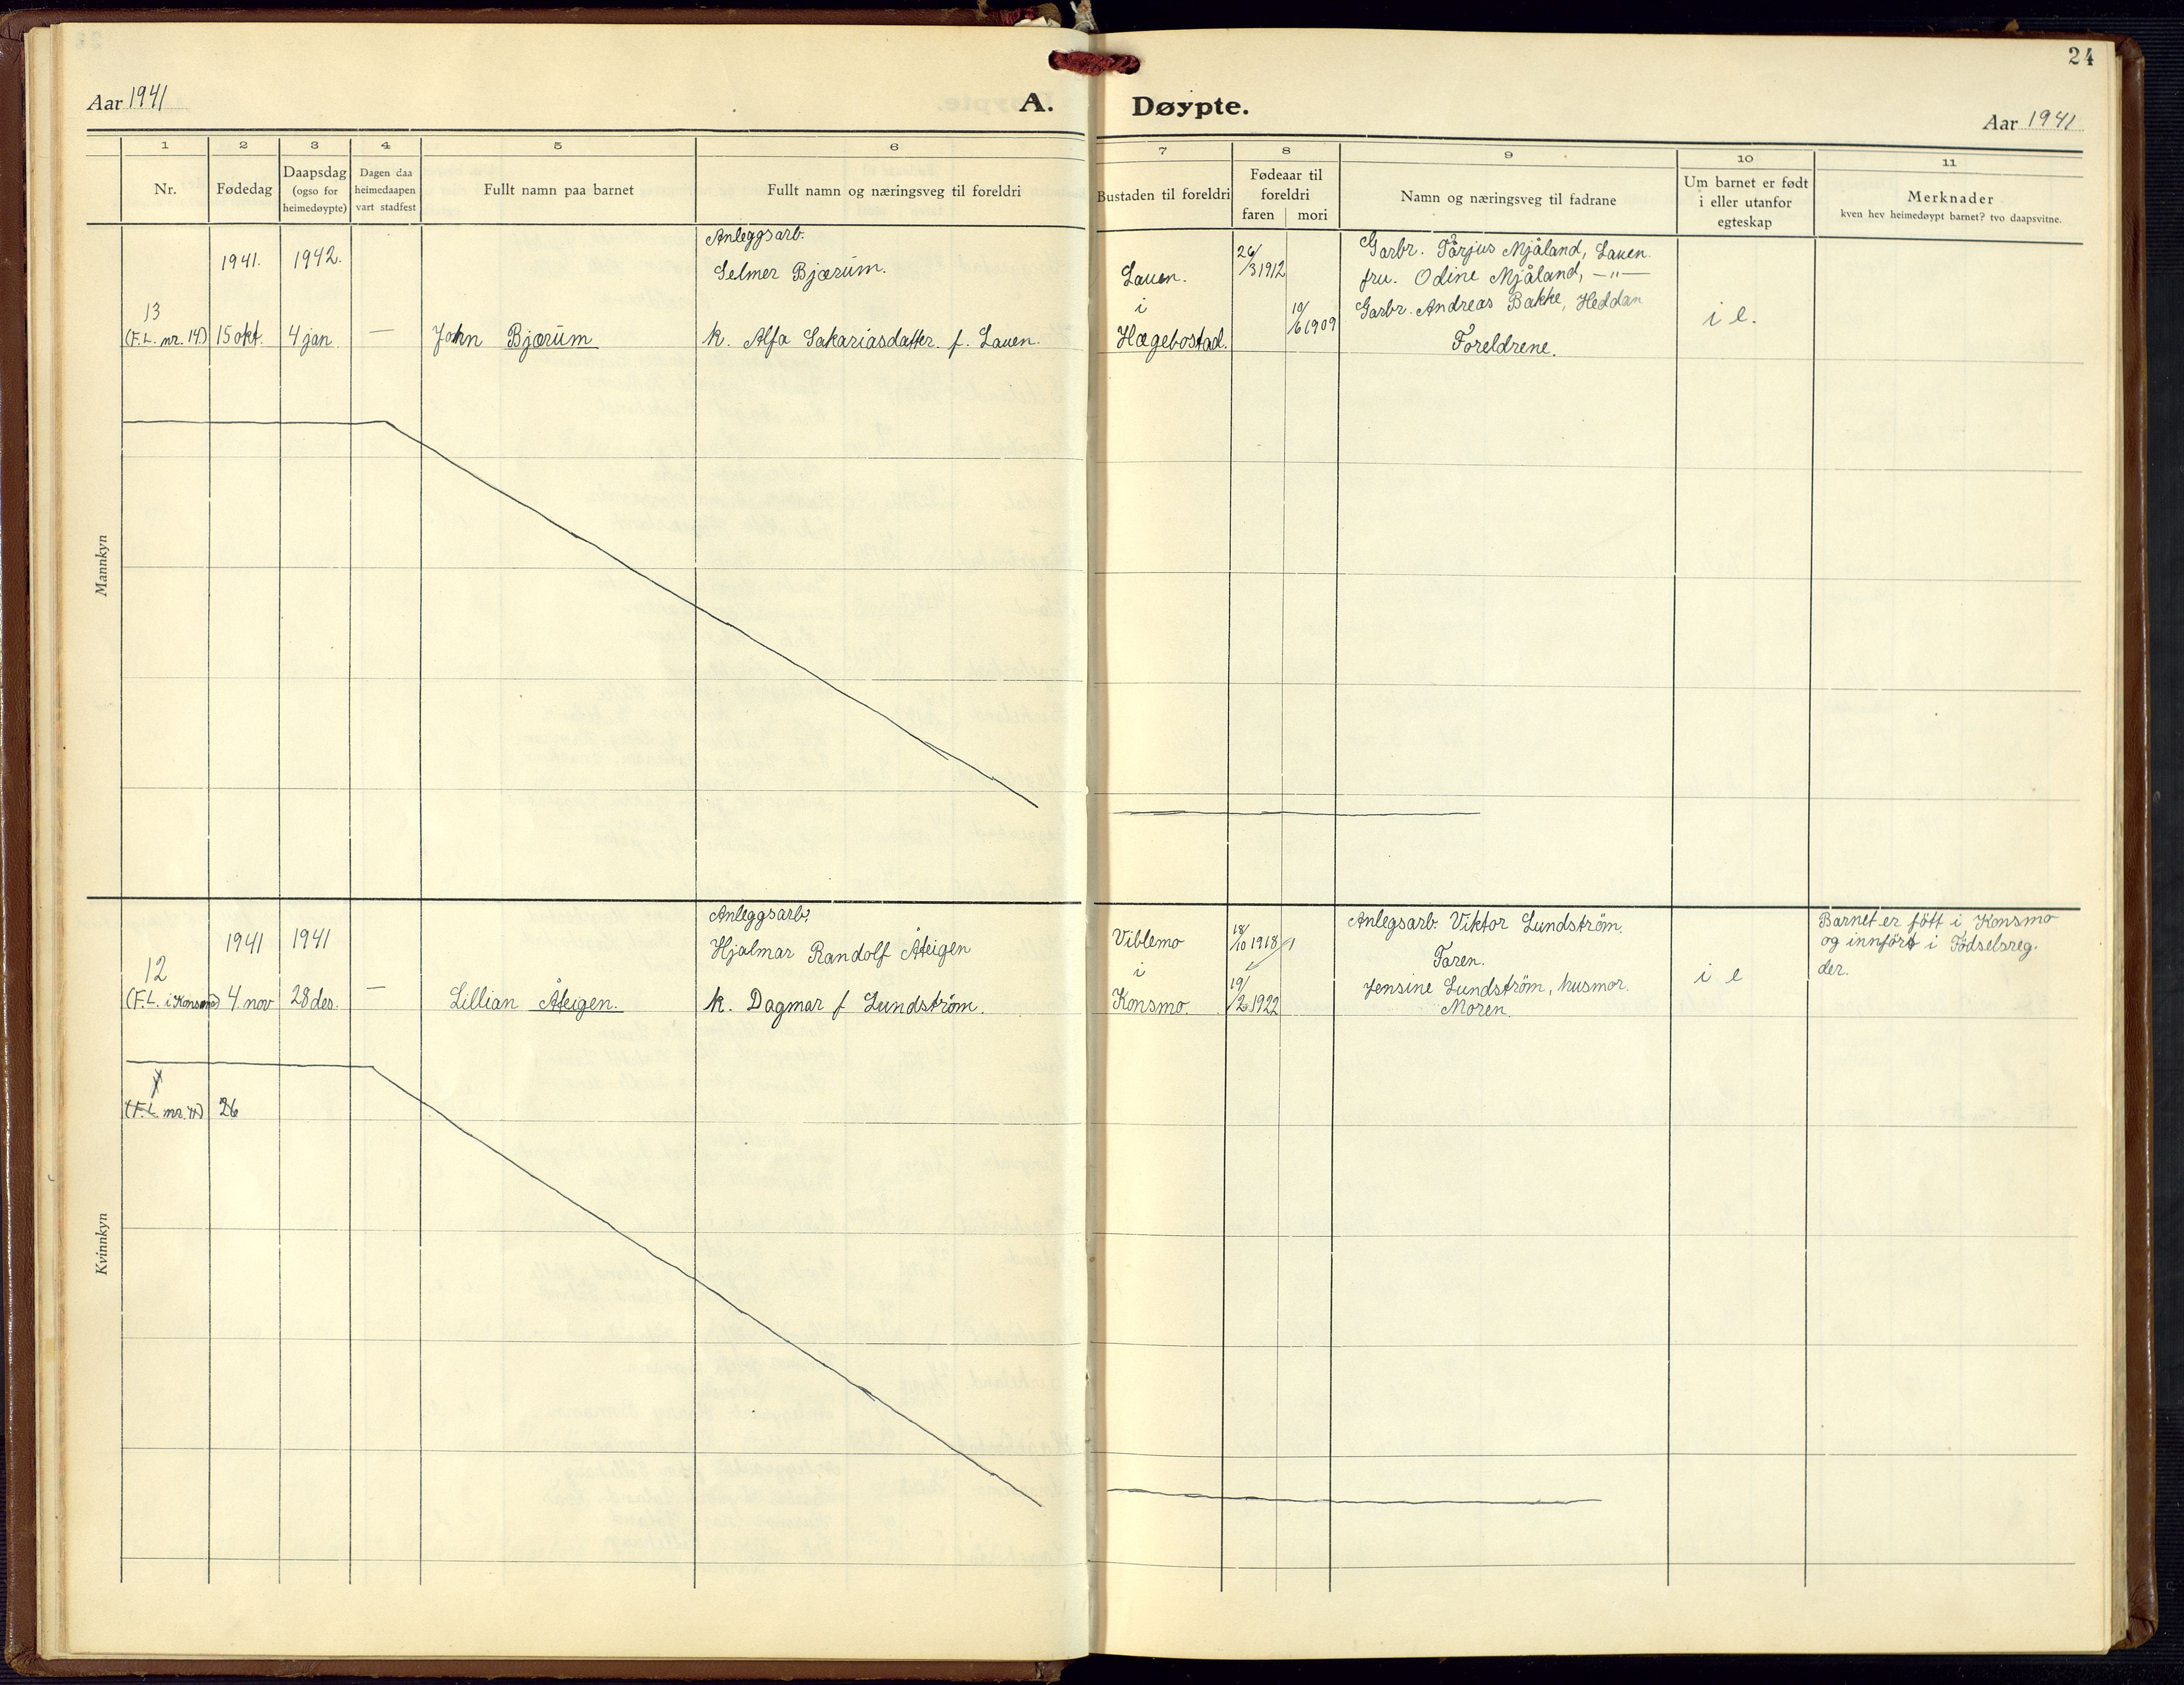 24
Aar 1941
A. Døypte.
Aar 1941
1 2 3 4 5 6 7 8 9 10 11
Nr.
Fødedag
Daapsdag
(ogso for
heimedøypte)
Dagen daa
heimedaapen
vart stadfest
Fullt namn paa barnet
Fullt namn og næringsveg til foreldri
Bustaden til foreldri
Fødeaar til
foreldri
faren mori
Namn og næringsveg til fadrane
Um barnet er født
i eller utanfor
egteskap
Merknader
kven hev heimedøypt barnet? tvo daapsvitne.
Mannkyn
13
(F.L. nr. 14)
1941.
15 okt.
1942.
4 jan.
—
John Bjærum
Anleggsarb.
Selmer Bjærum.
k. Alfa Sakariasdatter f. Lauen.
Lauen.
i
Hægebostad.
26/3 1912
19/6 1909
Garbr. Tårjus Mjåland, Lauen.
fru. Odine Mjåland, —"—
Garbr. Andreas Bakke, Heddan
Foreldrene.
i e.
Kvinnkyn
12
(F.L. i Konsmo)
1941
4. nov
1941
28 des.
—
Lillian Åteigen.
Anleggsarb.
Hjalmar Randolf Åteigen
k. Dagmar f Lundström.
Viblemo
i
Konsmo.
18/10 1918
19/2 1922
Anlegsarb. Viktor Lundström.
Faren.
Jensine Lundström, husmor.
Moren.
i e
Barnet er fött i Konsmo
og innfört i Födselsreg.
der.
(F.L. nr. 11) 26